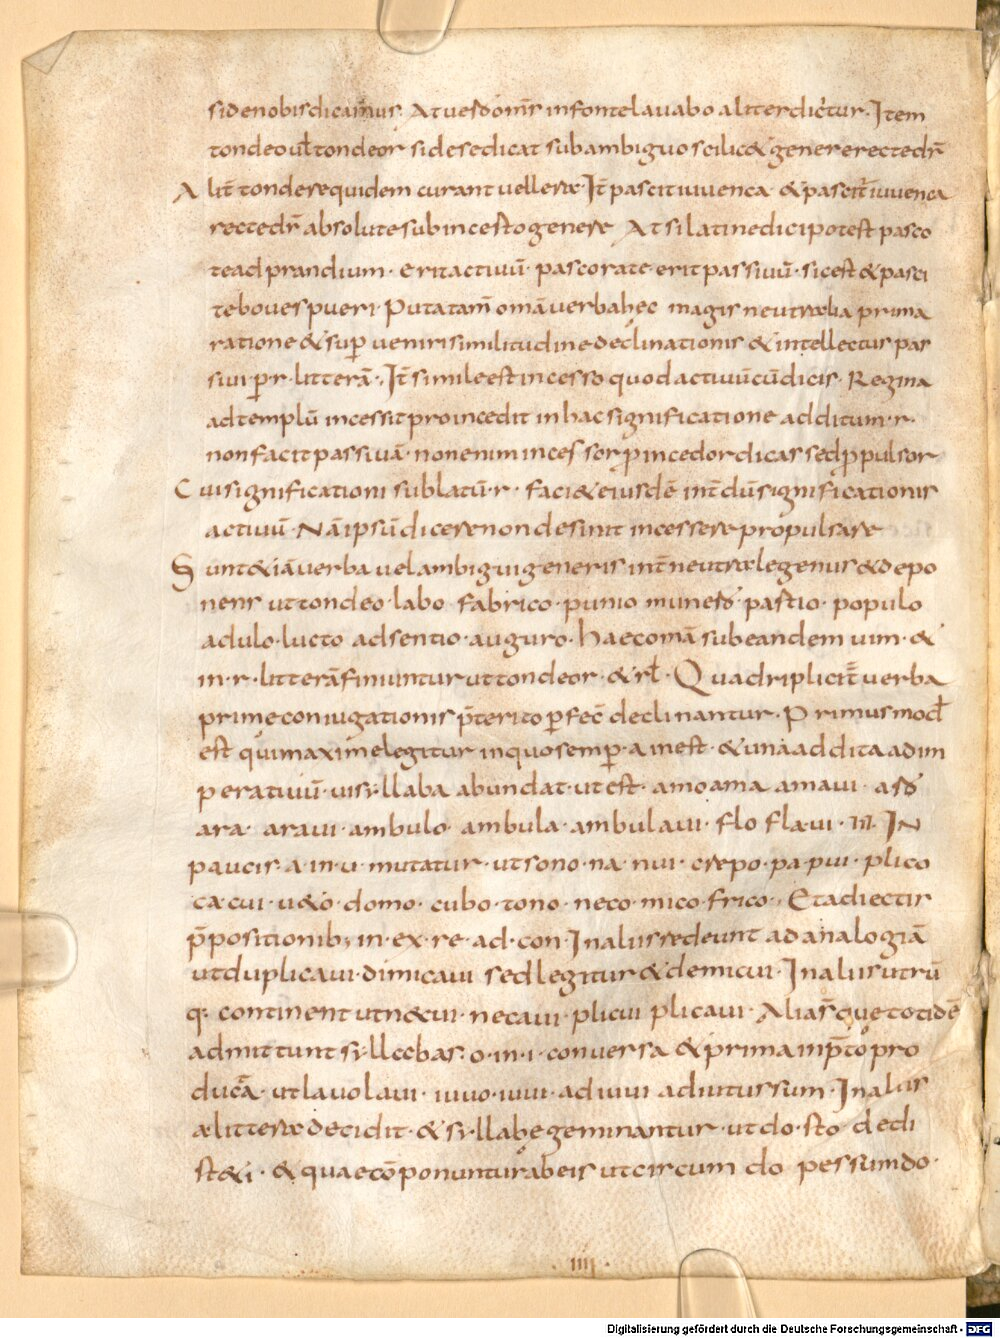 sidenobisdicamus. Atuesdom̄s infontelauabo aliterdicitur. Item
tondeo uł tondeor sidesedicat subambiguo scilic& generere rectedr̄
Alit̄ tondere quidem curant uellere. It̄ pascit iuuenca & pascit̄ iuuenca
rectedr̄ absolutesub incestogenere At silatinedicipotest pasco
tead prandium. eritactiuū. pascorate erit passiuū. sicest & pasci
tebouespueri. Putatam̄ omā uerbahec magis neutralia prima
ratione & sup̄ uenirisimilitudine declinationis & intellectus pas
siui p̄.r. litterā. It̄ simileest incesso quod actiuū cū dicis. Regina
ad templū incessit pro incedit in hac significatione additum .r.
non facit passiuā. nonenim incessor p̄ incedor dicas sed p̄ pulsor
Cui significationi sublatū .r. faci& eiusdē int̄dū significationis
actiuū. Nā ipsū dicere non desinit incessere propulsare
Sunt & iā uerba uel ambigui generis int̄ neutrale genus & depo
nens ut tondeo. labo. fabrico. punio munero. pastio. populo
adulo. lucto adsentio. auguro. haec omā sub eandem uim. &
in .r. litterā finiuntur ut tondeor. & rł. Quadriplicit̄ uerba
prime coniugationis p̄terito p̄fec̄ declinantur. Primus mod
est qui maxime legitur in quo semp̄ .a. inest. & una addita ad im
peratiuū. ui syllaba abundat. ut est. amo ama amaui. aro
ara. araui. ambulo. ambula. ambulaui. flo flaui. II. IN
paucis .a. in .u. mutatur. ut sono. na. nui. crepo. pa. pui. plico
ca. cui. u&o. domo. cubo. tono. neco. mico. frico. Et adiectis
p̄positionib; in. ex. re. ad. con. In aliis redeunt ad analogiā
ut duplicaui. dimicaui sed legitur & demicui. In aliis utrū
q. continent ut necui. necaui. plicui plicaui. Alias que totidē
admittunt syllabas .o. in .i. conuersa & prima in p̄to pro
ducta. ut lauo laui. iuuo. iuui. adiuui adiuturssum. In aliis
a littera decidit. & syllabe geminantur. ut do. sto dedi
st&i. & quae cōponuntur ab eis ut circum do pessumdo.
IIII
Digitalisierung gefördert durch die Deutsche Forschungsgemeinschaft - DFG